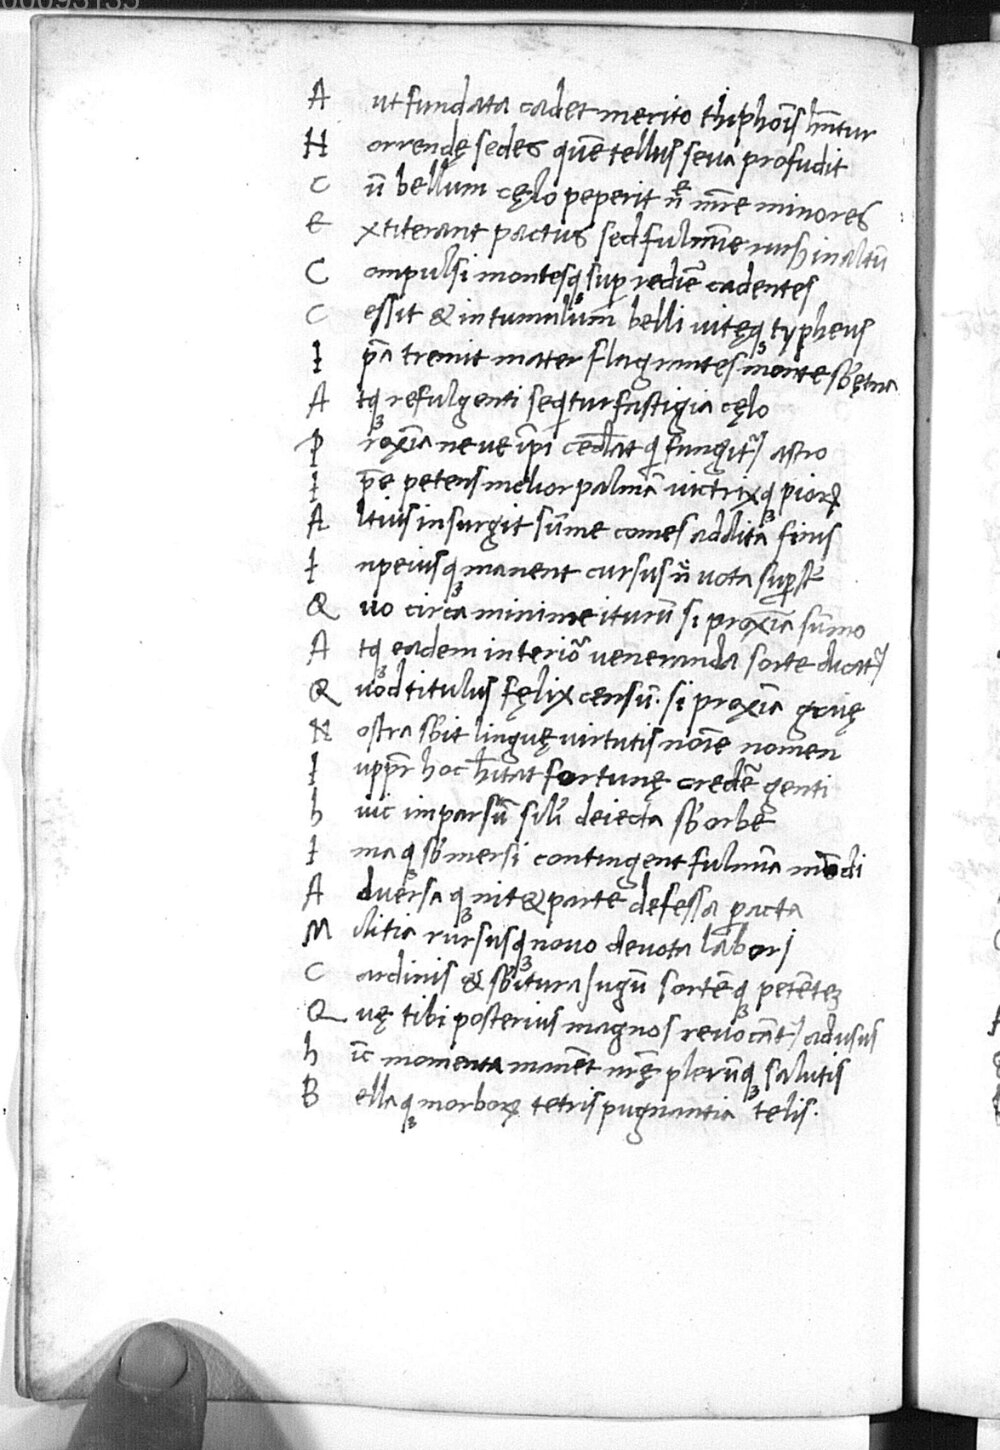 00093133
A ut fundata cadet merito thiphoīs hn̄tur
H orrendę sedes quē tellus seva profudit
C ū bellum cęlo peperit n̄ mr̄e minores
E xtiterant partus sed fulmīe rursus in altū
C ompulsi montesq̨ sup̱ rediē cadentes
C essit & in tumulum belli vitęq̨ typheus
I pā tremit mater flagrantes monte sb' ętna
A tq̨ refulgenti seqͥtur fastigia cęlo
P roxīa neve īpi cedat q̄ fungit᷑ astro
I pe petens melior palmā victrixq̨ pioꝝ
A ltius insurgit sūme comes addita finis
I npeiusq̨ manent cursus n̄ vota supͣ
Q uo circa minime iturū si proxīa sūmo
A tq̨ eadem interiō veneranda sorte dicat᷑
Q uod titulus fęlix censū. si proxīa gravę
N ostra sb'it linguę virtutis noīe nomen
I uppr̄ hoc hītat fortunę credē genti
h uic impar sūt sil'i deiecta sb' orbe
I maq̨ sb'mersi contingent fulmīa mūdi
A dversa q̨ nit & parte defessa p̱acta
M ilitia rursusq̨ novo devota labori
C ardinis & sb'itura jugū sortēq̨ petētez
Q vę tibi posterius magnos revocāt᷑ ad usus
h īc momenta manēt nr̄ę plerūq̨ salutis
B ellaq̨ morboꝝ tetris pugnantia telis.